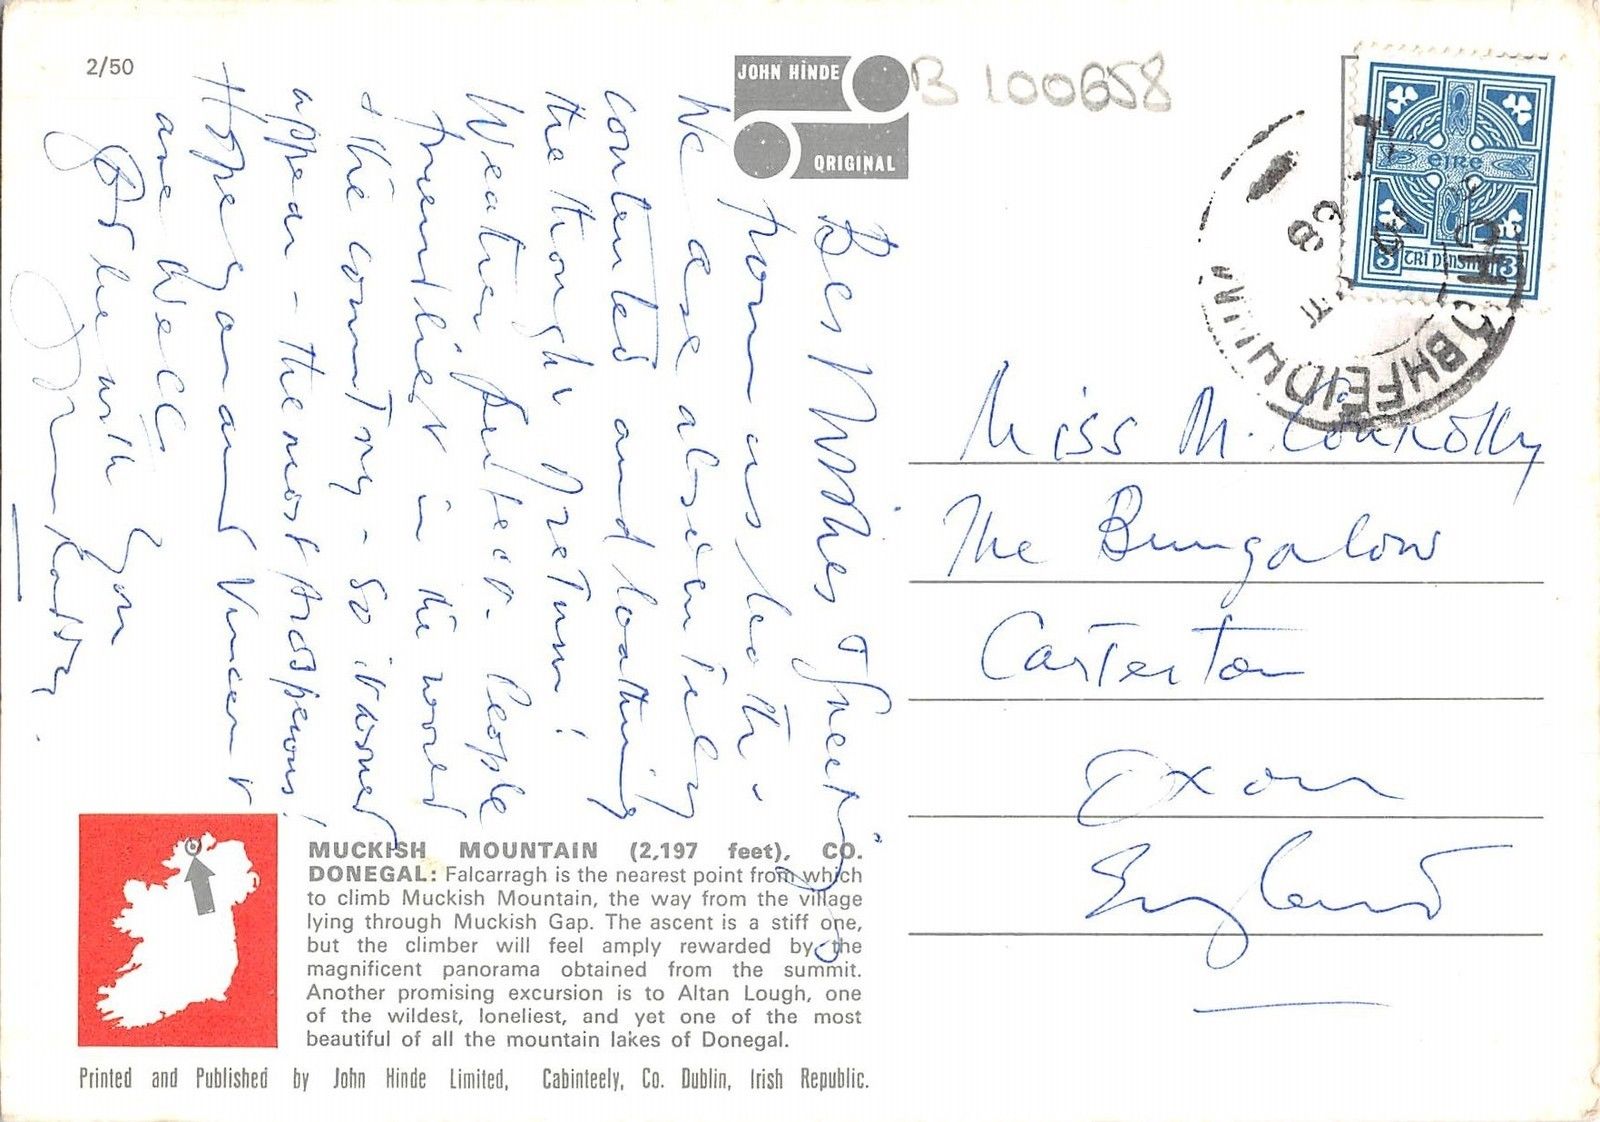 2/50
JOHN HINDE
ORIGINAL
B 100658
EIRE
3 TRI PINSIN 3
Best Wishes & Greetings
from us both.
We are absolutely
contented and loathing
the thought of return!
Weather perfect. People
friendliest in the world
& the country - so it would
appear - the most prosperous!
Hope you and Vincent
are well
God be with you
Miss M. Connolly
The Bungalow
Carterton
Oxon
England
MUCKISH MOUNTAIN (2,197 feet), CO.
DONEGAL: Falcarragh is the nearest point from which
to climb Muckish Mountain, the way from the village
lying through Muckish Gap. The ascent is a stiff one,
but the climber will feel amply rewarded by the
magnificent panorama obtained from the summit.
Another promising excursion is to Altan Lough, one
of the wildest, loneliest, and yet one of the most
beautiful of all the mountain lakes of Donegal.
Printed and Published by John Hinde Limited, Cabinteely, Co. Dublin, Irish Republic.